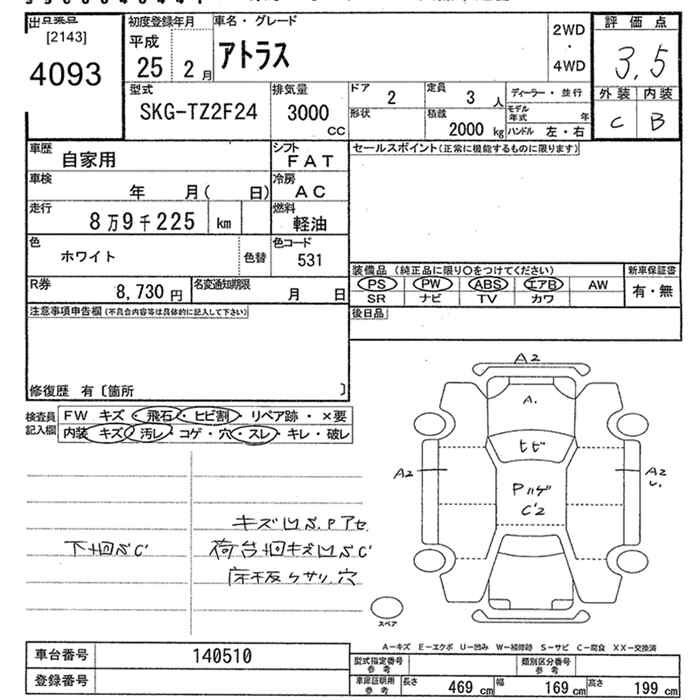 [2143]
4093
初度登録年月
平成
25 2月
車名・グレード
アトラス
2WD
・
4WD
評価点
3.5
外装 内装
C B
型式
SKG-TZ2F24
排気量
3000
CC
ドア
2
定員
3人
形状
積載
2000 kg
ディーラー・並行
モデル年式 年
ハンドル 左・右
車歴
自家用
シフト
FAT
車検
年 月( 日)
冷房
AC
走行
8万9千225 km
燃料
軽油
色
ホワイト
色替
色コード
531
R券
8,730円
名変通知期限
月 日
セールスポイント(正常に機能するものに限ります)
装備品 (純正品に限り○をつけてください)
PS PW ABS エアB AW
SR ナビ TV カワ
新車保証書
有・無
後日品
注意事項申告欄(不具合内容等は具体的に記入して下さい)
修復歴 有〔箇所 〕
検査員
記入欄
FW キズ・飛石・ヒビ割・リペア跡・×要
内装 キズ・汚レ・コゲ・穴・スレ・キレ・破レ
下回S C'
キズ凹S.Pアセ
荷台回キズ凹S C'
床板クサリ、穴
A2
A.
ヒビ
A2
Pハゲ
C'2
A2
スペア
A-キズ E-エクボ U-凹み W-補修跡 S-サビ C-腐食 XX-交換済
車台番号
140510
登録番号
型式指定番号
参考
類別区分番号
参考
車庫証明用
参考
長さ 469 cm
幅 169 cm
高さ 199 cm